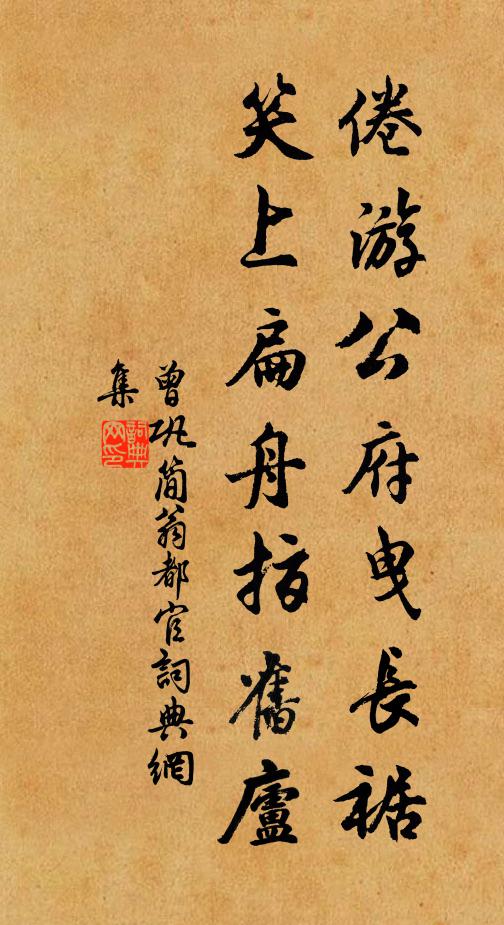 倦游公府曳長裾
笑上扁舟指舊廬
曾巩簡翁都官詞典網
集
詞典
网印